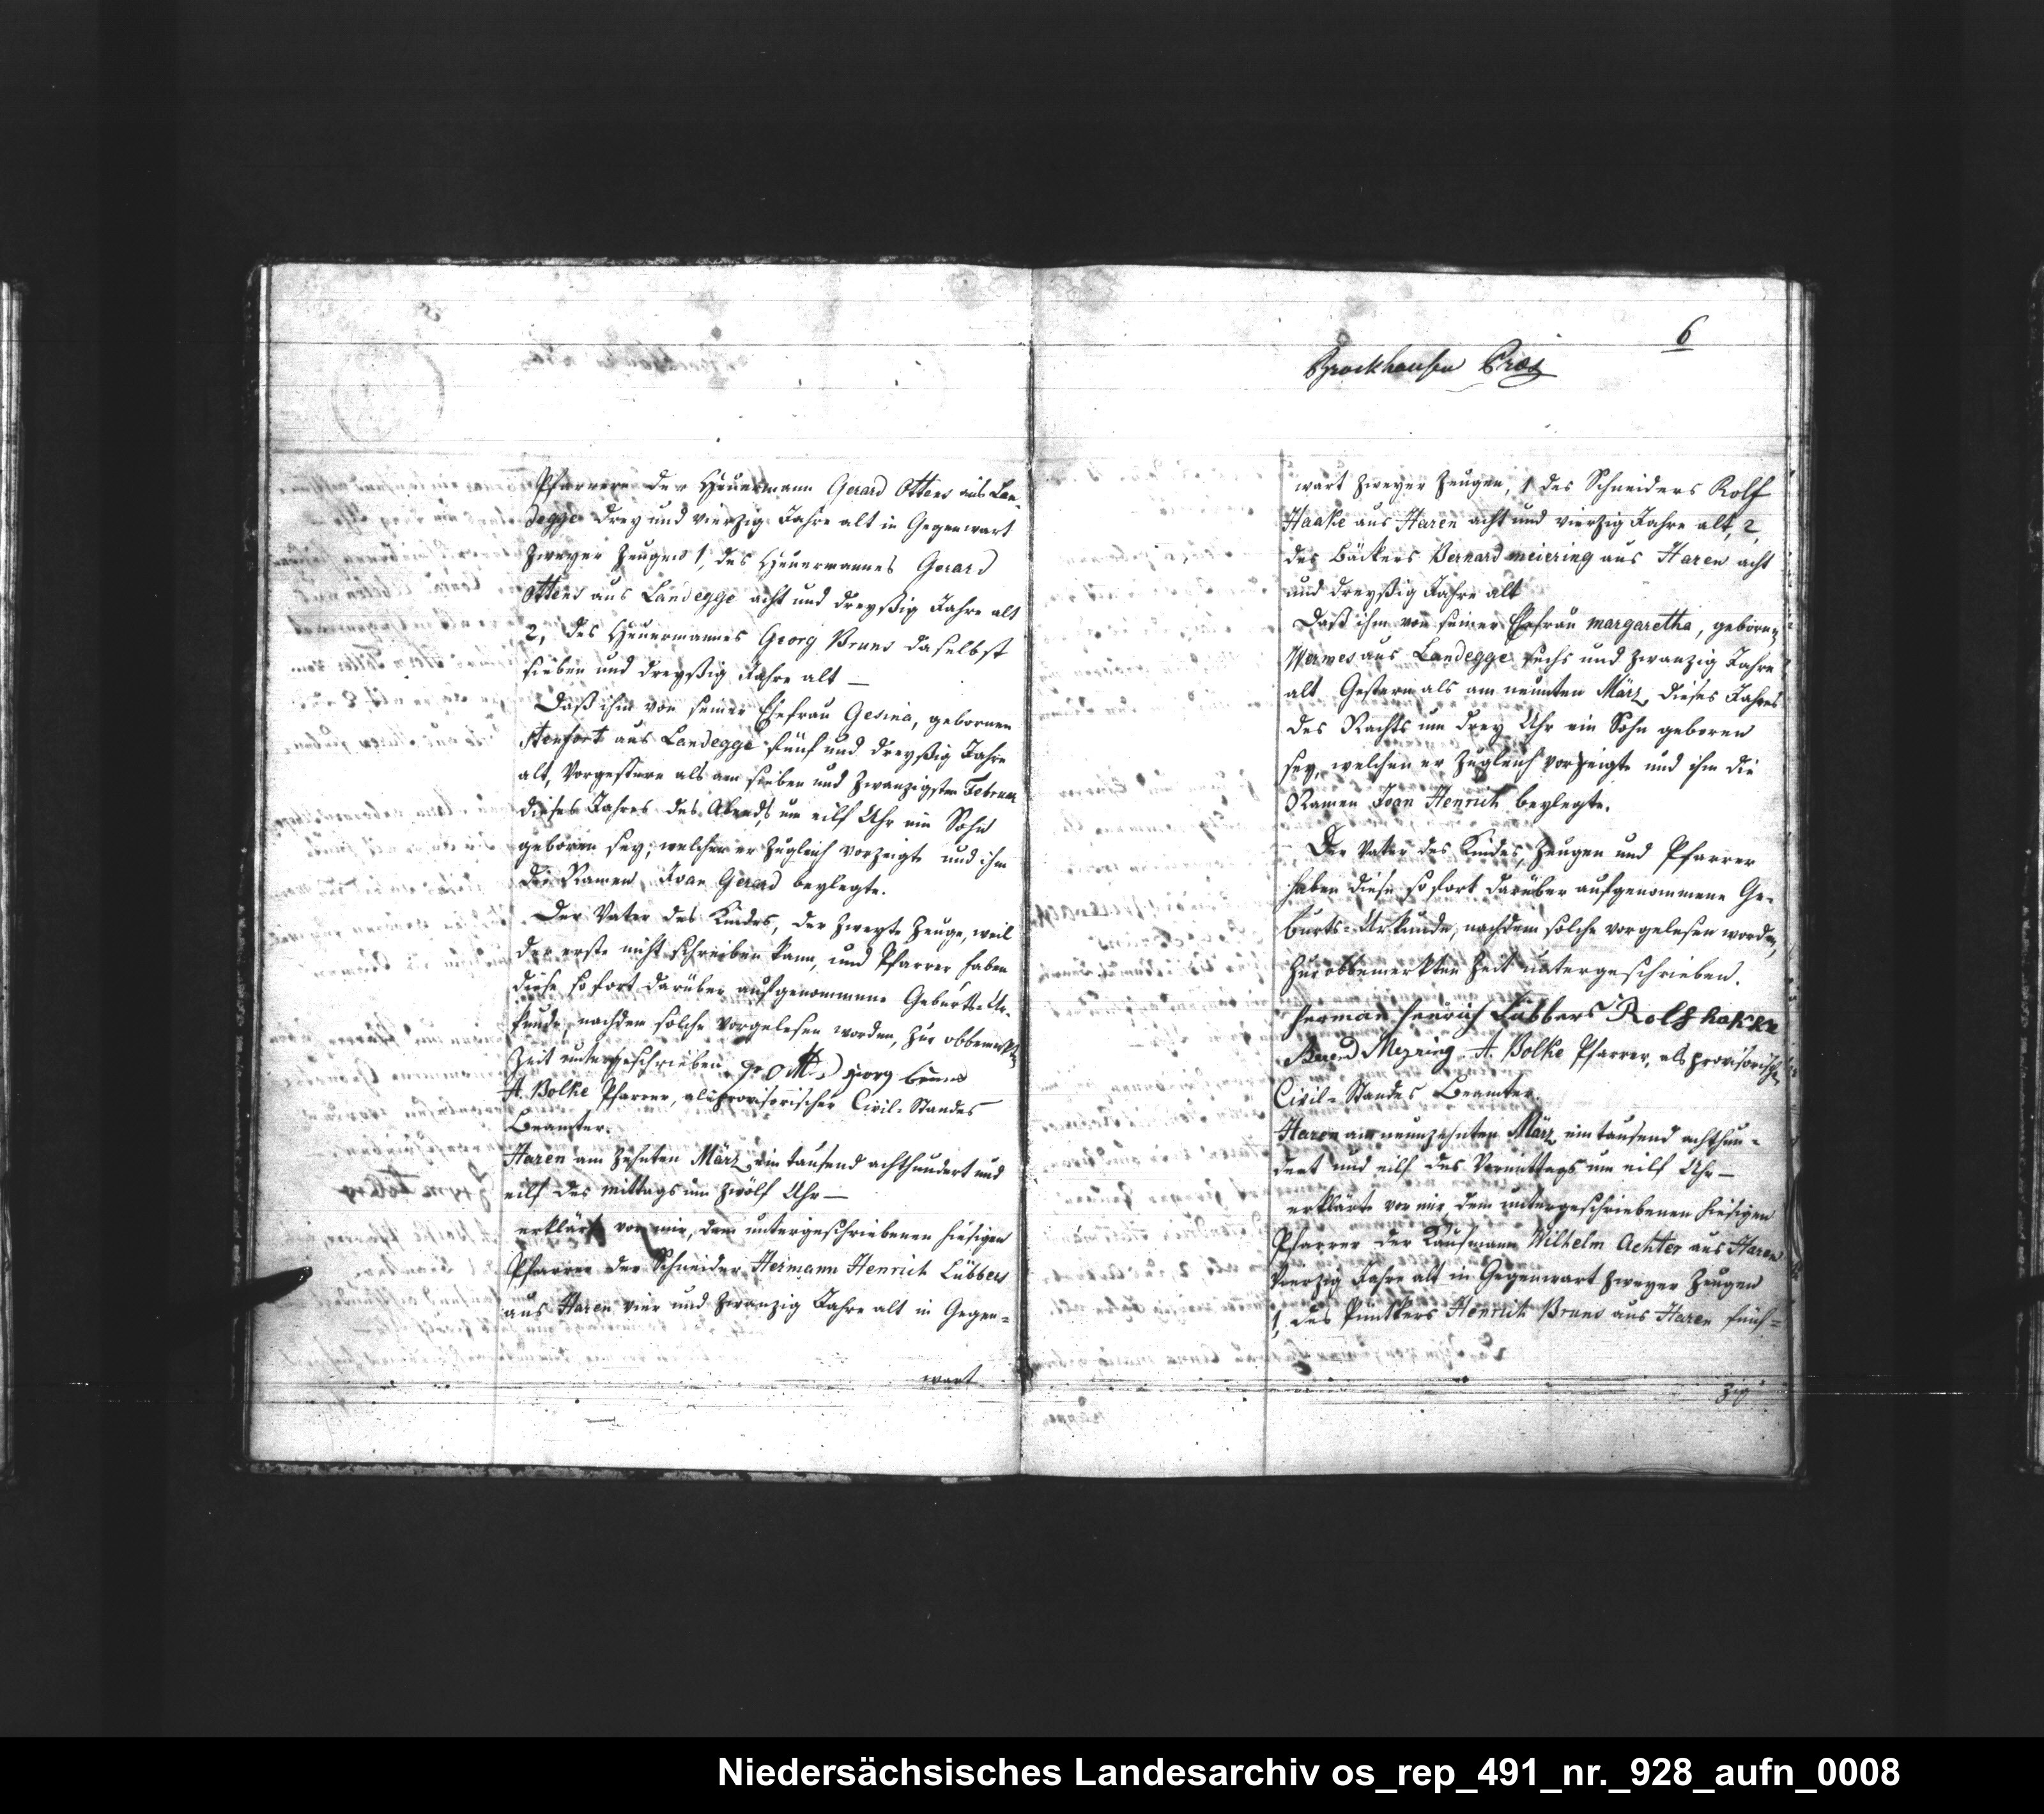 Pfarrern der Heuermann Gerard Ottens aus Lan
degge drey und vierzig Jahre alt in Gegenwart
zweyer Zeugen 1, des Heuermannes Gerard
Ottens aus Landegge acht und dreyßig Jahre alt
2, des Heuermannes Georg Bruns daselbst
sieben und dreyßig Jahre alt —
Daß ihm von seiner Ehefrau Gesina, gebornen
Stenfort aus Landegge fünf und dreyßig Jahre
alt, Vorgestern als am sieben und zwanzigsten Februar
dieses Jahres des Abends um eilf Uhr ein Sohn
geboren sey, welchen er zugleich vorzeigte und ihm
die Namen Joan Gerard beylegte.
Der Vater des Kindes, der zweyte Zeuge, weil
der erste nicht schreiben kann, und Pfarrer haben
diese sofort darüber aufgenommene Geburts-Ur-
kunde, nachdem solche vorgelesen worden, zur obbemerkten
Zeit untergeschrieben. Georg Bruns
A. Bolke Pfarrer, als provisorischer Civil-Standes
Beamter.
Haren am zehnten März eintausend achthundert und
eilf des mittags um zwölf Uhr —
erklärte vor mir, dem untergeschriebenen hiesigen
Pfarrer der Schneider Hermann Henrich Lübbers
aus Haren vier und zwanzig Jahre alt in Gegen-
wart
6
Brockhausen Präs
wart zweyer Zeugen, 1 des Schneiders Rolf
Haake aus Haren acht und vierzig Jahre alt, 2,
des Bäckers Bernard meiering aus Haren acht
und dreyßig Jahre alt
Daß ihm von seiner Ehefrau margaretha, gebornen
Wermes aus Landegge sechs und zwanzig Jahre
alt Gestern als am neunten März dieses Jahres
des Nachts um drey Uhr ein Sohn geboren
sey, welchen er zugleich vorzeigte und ihm die
Namen Joan Henrich beylegte.
Der Vater des Kindes, Zeugen und Pfarrer
haben diese sofort darüber aufgenommene Ge-
burts-Urkunde, nachdem solche vorgelesen worden,
zur obbemerkten Zeit untergeschrieben.
Herman Henrich Lübbers Rolf hakke
Berend Meyring A. Bolke Pfarrer, als provisorischer
Civil-Standes Beamter.
Haren am neunzehnten März eintausend achthun-
dert und eilf des Vormittags um eilf Uhr —
erklärte vor mir, dem untergeschriebenen hiesigen
Pfarrer der Kaufmann Wilhelm Achter aus Haren
vierzig Jahre alt in Gegenwart zweyer Zeugen
1, des Henrich Bruns aus Haren fünf-
zig
Niedersächsisches Landesarchiv os_rep_491_nr._928_aufn_0008